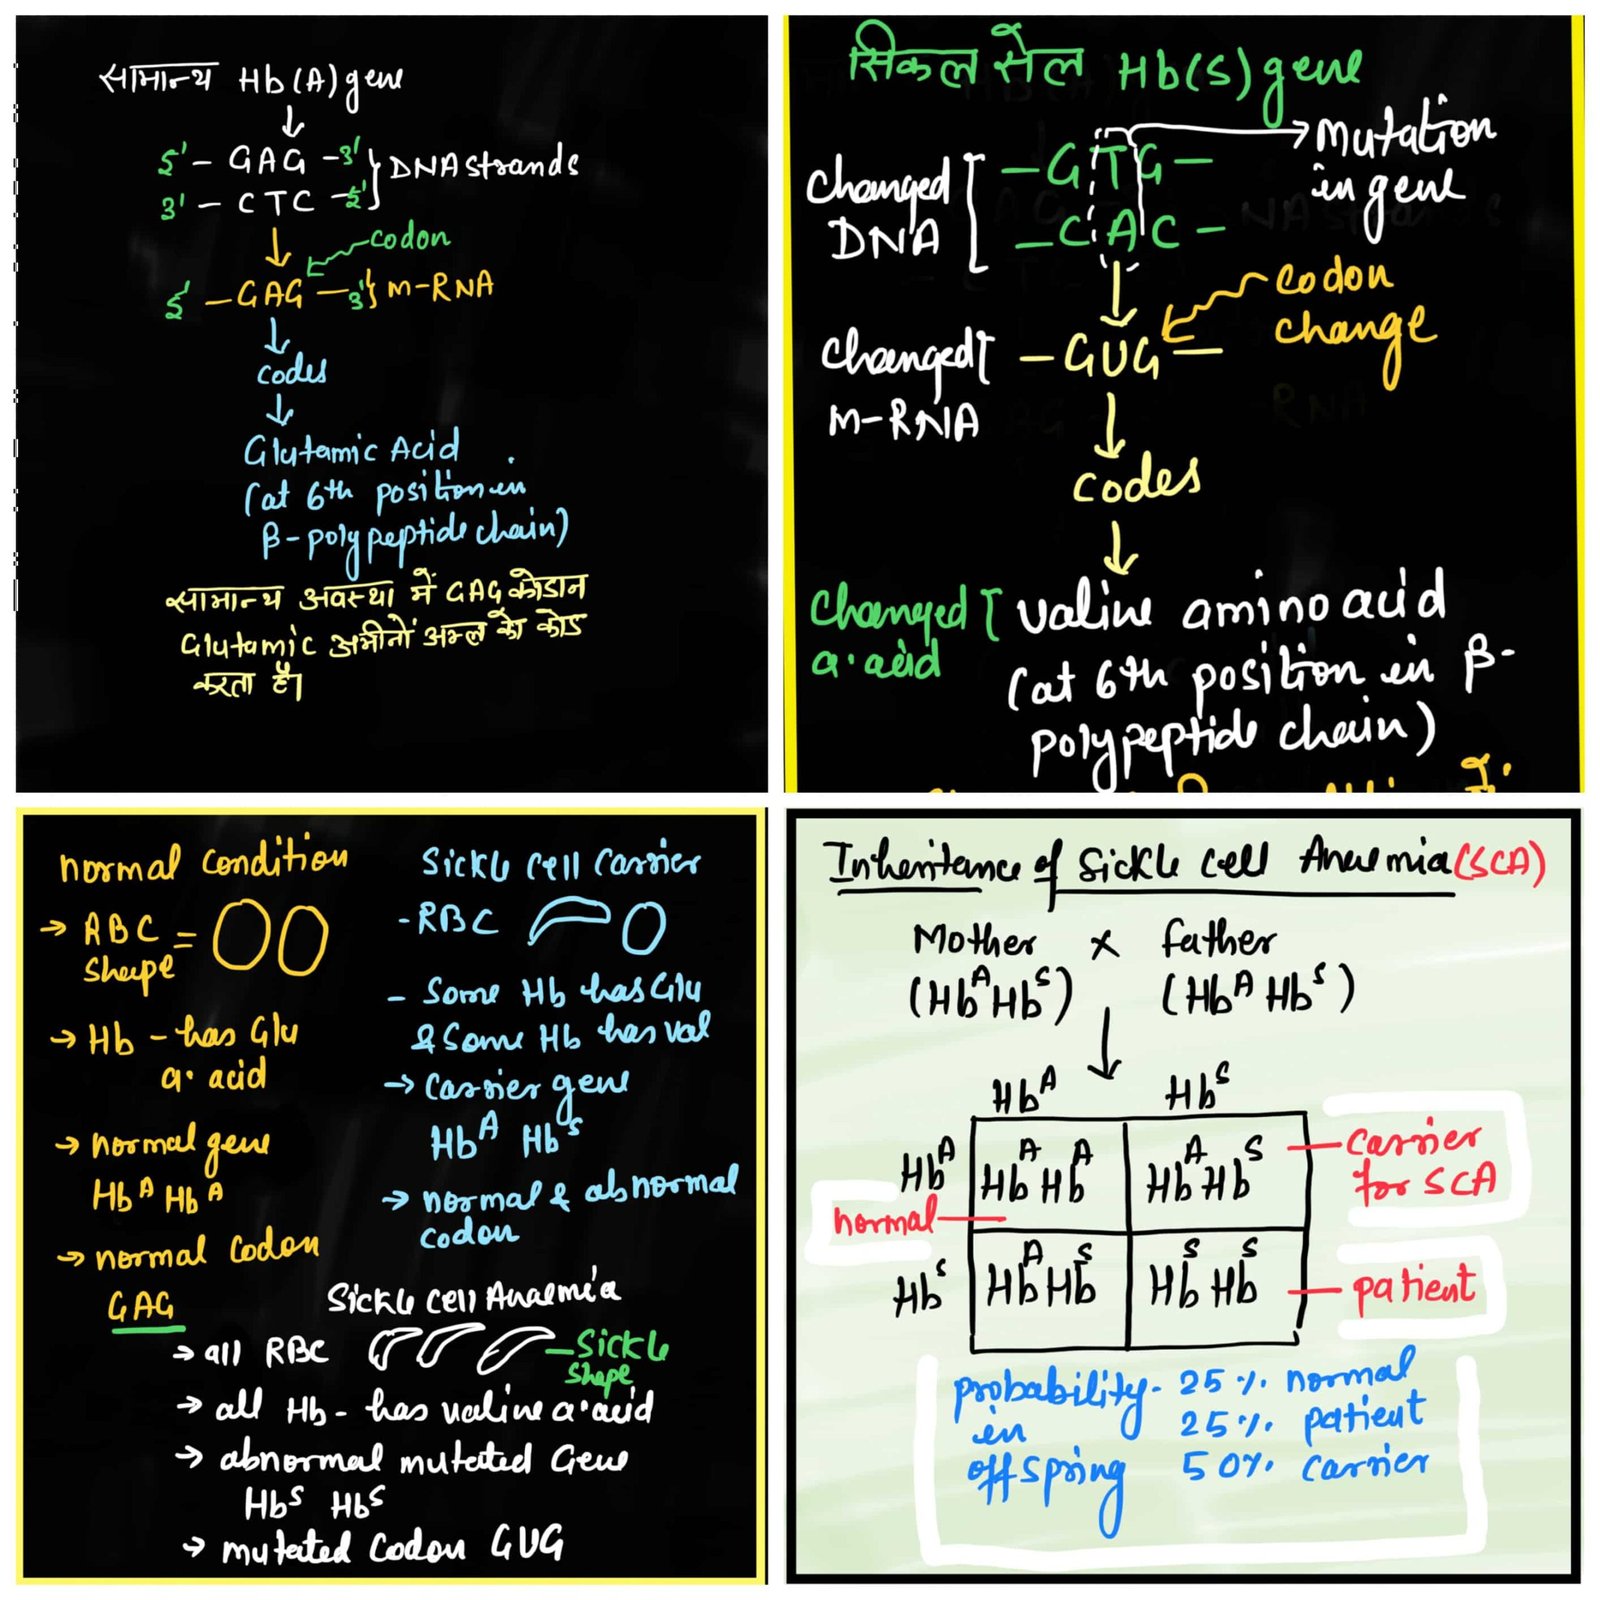 सामान्य Hb(A) gene
5' - GAG - 3'
3' - CTC - 5'
DNA strands
codon
5' - GAG - 3' } m-RNA
codes
Glutamic Acid
(at 6th position in
β-polypeptide chain)
सामान्य अवस्था में GAG कोडान
Glutamic अमीनों अम्ल को कोड
करता है।
सिकल सेल Hb(S) gene
Mutation
in gene
changed
DNA
-GTG-
-CAC-
codon
change
changed
m-RNA
-GUG-
codes
changed
a.acid
valine amino acid
(at 6th position in β-
polypeptide chain)
normal condition
→ RBC =
shape
→ Hb - has Glu
a. acid
→ normal gene
Hb^A Hb^A
→ normal codon
GAG
Sickle cell carrier
- RBC
- Some Hb has Glu
& Some Hb has val
→ carrier gene
Hb^A Hb^S
→ normal & abnormal
codon
Sickle cell Anaemia
→ all RBC
- Sickle
shape
→ all Hb - has valine a.acid
→ abnormal mutated Gene
Hb^S Hb^S
→ mutated codon GUG
Inheritance of Sickle cell Anaemia (SCA)
Mother × father
(Hb^A Hb^S) (Hb^A Hb^S)
Hb^A Hb^S
Hb^A Hb^A Hb^A Hb^A Hb^S
carrier
for SCA
normal
Hb^S Hb^A Hb^S Hb^S Hb^S
patient
probability - 25% normal
in 25% patient
offspring 50% carrier